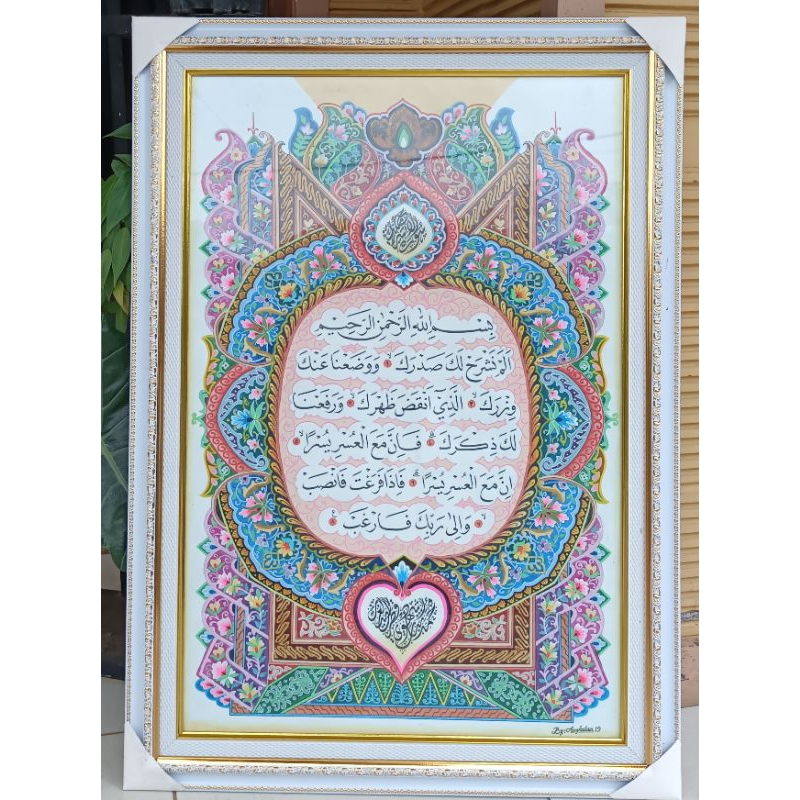 بِسْمِ اللهِ الرَّحْمٰنِ الرَّحِيْمِ
اَلَمْ نَشْرَحْ لَكَ صَدْرَكَ ۝١ وَوَضَعْنَا عَنْكَ
وِزْرَكَ ۝٢ الَّذِيْٓ اَنْقَضَ ظَهْرَكَ ۝٣ وَرَفَعْنَا
لَكَ ذِكْرَكَ ۝٤ فَاِنَّ مَعَ الْعُسْرِ يُسْرًا ۝٥
اِنَّ مَعَ الْعُسْرِ يُسْرًا ۝٦ فَاِذَا فَرَغْتَ فَانْصَبْ
۝٧ وَاِلٰى رَبِّكَ فَارْغَبْ ۝٨